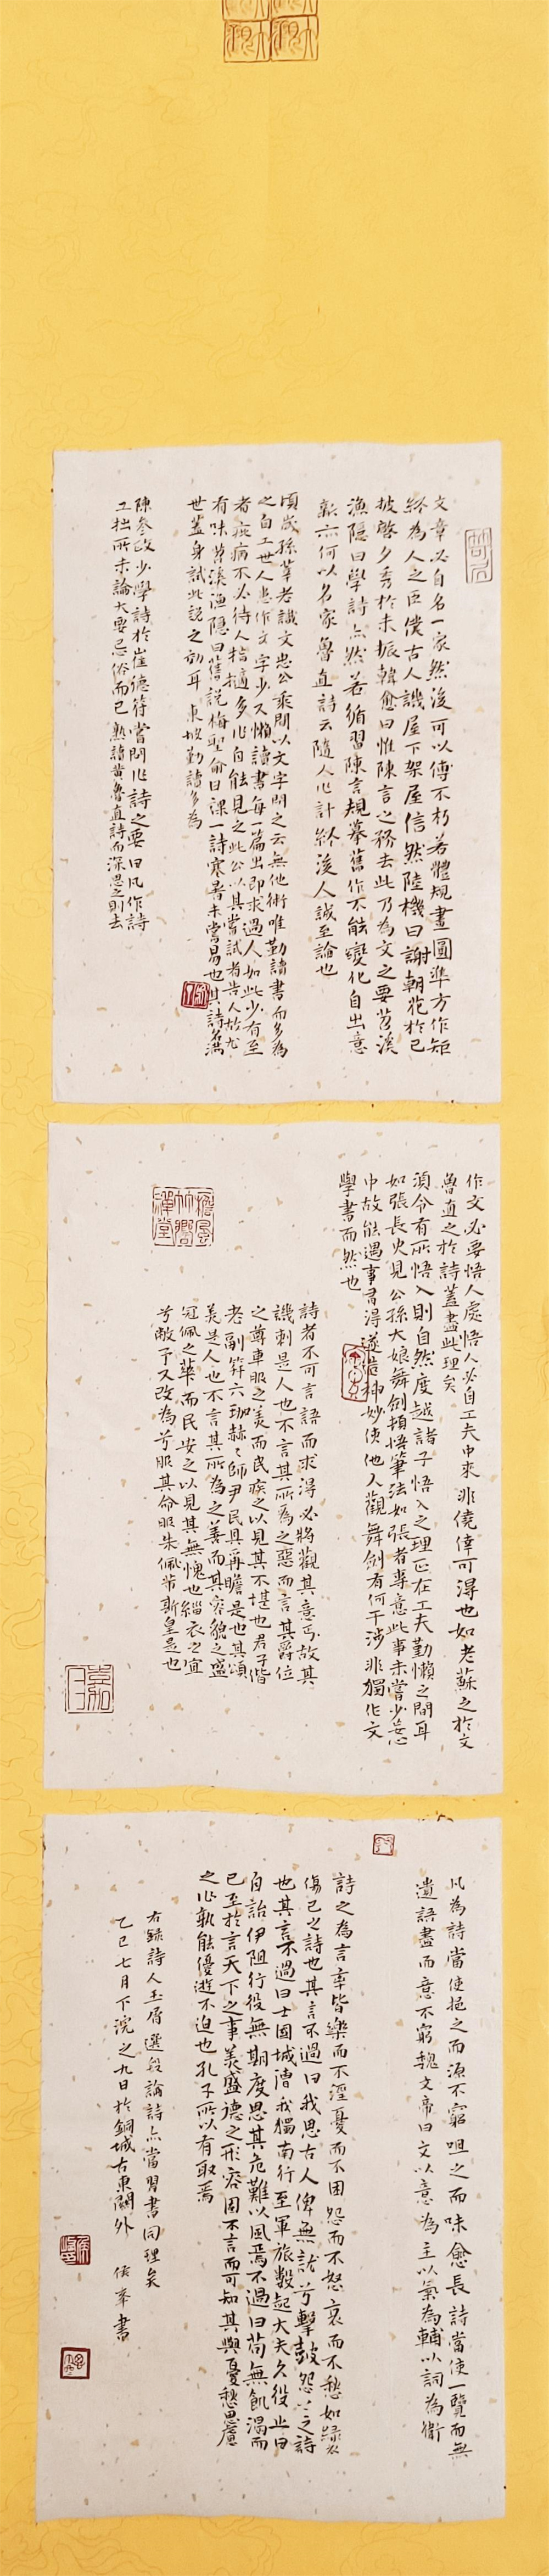 文章必自名一家然後可以傳不朽若體規畫圓準方作矩
終為人之臣僕古人譏屋下架屋信然陸機曰謝朝花於已
披啓夕秀於未振韓愈曰惟陳言之務去此乃為文之要苕溪
漁隱曰學詩亦然若循習陳言規摹舊作不能變化自出意
新亦何以名家魯直詩云隨人作計終後人誠至論也
頃歲孫莘老識文忠公乘間以文字問之云無他術唯勤讀書而多為
之自工世人患作文字少又懶讀書每一篇出即求過人如此少有至
者疵病不必待人指擿多作自能見之此公以其嘗試者告人故尤
有味苕溪漁隱曰舊說梅聖俞日課一詩寒暑未嘗易也其詩名滿
世蓋身試此說之効耳 東坡勤讀多為
陳參政少學詩於崔德符嘗問作詩之要曰凡作詩
工拙所未論大要忌俗而已 熟讀黃魯直詩而深思之則去
作文必要悟入處悟入必自工夫中來 非僥倖可得也如老蘇之於文
魯直之於詩蓋盡此理矣
須令有所悟入則自然度越諸子悟入之理正在工夫勤懶之間耳
如張長史見公孫大娘舞劍頓悟筆法如張者專意此事未嘗少忘心
中故能遇事有得遂造神妙使他人觀舞劍有何干涉非獨作文
學書而然也
詩者不可言語而求得必將觀其意焉故其
譏刺是人也不言其所為之惡而言其爵位
之尊車服之美而民疾之以見其不堪也君子偕
老副笄六珈赫赫師尹民具爾瞻是也其頌
美是人也不言其所為之善而其容貌之盛
冠佩之華而民安之以見其無愧也緇衣之宜
兮敝予又改為兮服其命服朱佩芾斯皇是也
凡為詩當使挹之而源不窮咀之而味愈長 詩當使一覽而無
遺語盡而意不窮魏文帝曰文以意為主以氣為輔以詞為衛
詩之為言率皆樂而不淫憂而不困怨而不怒哀而不愁如綠衣
傷己之詩也其言不過曰我思古人俾無訧兮擊鼓怨之詩
也其言不過曰土國城漕我獨南行至軍旅數起大夫久役止曰
自詒伊阻行役無期度思其危難以風焉不過曰苟無飢渴而
已至於言天下之事美盛德之形容固不言而可知其與憂愁思慮
之作孰能優游不迫也孔子所以有取焉
右録詩人玉屑選段論詩亦當習書同理矣
乙巳七月下浣之九日於銅城古東關外 侯峯書